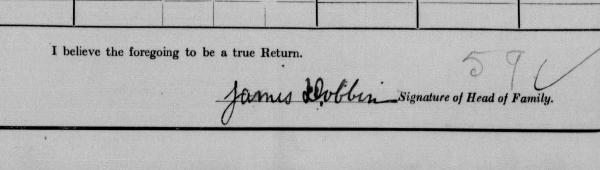 I believe the foregoing to be a true Return.
59
James Dobbin Signature of Head of Family.